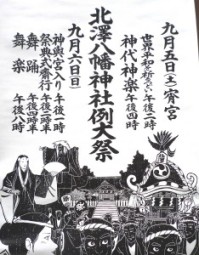 九月五日(土)宵宮
世界平和を祈る会 午後二時
神代神楽 午後四時
北澤八幡神社例大祭
九月六日(日)
神輿宮入り 午後一時
祭典式斎行 午後三時半
舞踊 午後四時半
舞楽 午後八時